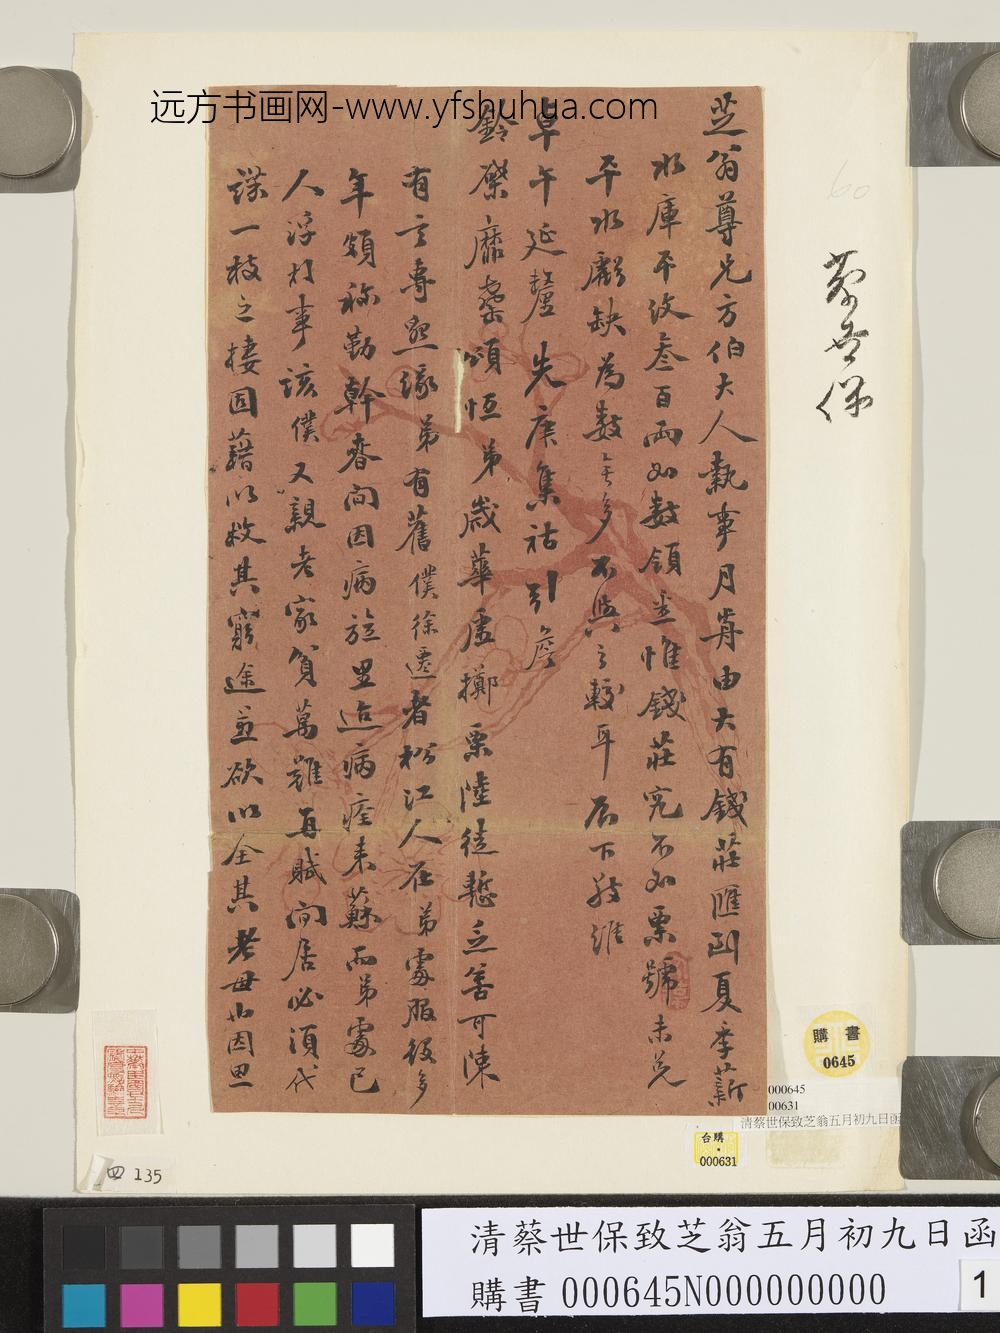 远方书画网-www.yfshuhua.com
芝翁尊兄方伯大人執事月前由大有錢莊匯到夏季薪
水庫平紋叁百兩如數領悉惟錢莊究不如票號未免
平水虧缺為數無多不與之較耳辰下敬維
卓午延釐先庚集祜引詹
鈴棨靡罄頌恒弟歲華虛擲栗陸徒慙乏善可陳
有言專懇緣弟有舊僕徐遷者松江人在弟處服役多
年頗称勤幹春間因病旋里迨病痊来蘇而弟處已
人浮於事該僕又親老家貧萬難再賦閒居必須代
謀一枝之棲因藉以救其窮途並欲以全其老母也因思
蔡世保
60
購書
0645
000645
00631
清蔡世保致芝翁五月初九日函
台購
000631
四 135
清蔡世保致芝翁五月初九日函
購書 000645N000000000
1